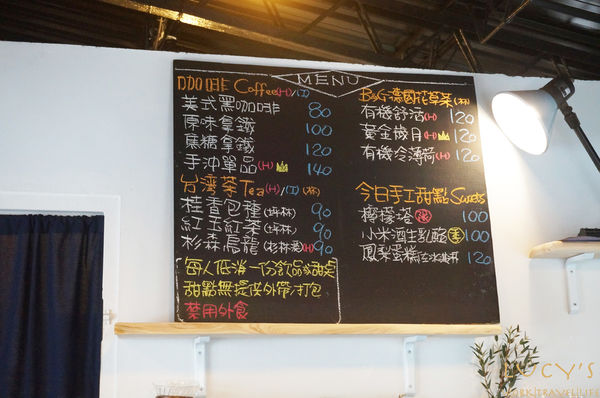 MENU
咖啡 Coffee(H)/(I)
美式黑咖啡 80
原味拿鐵 100
焦糖拿鐵 120
手沖單品(H) 140
台灣茶 Tea(H)/(I)(杯)
桂香包種(坪林) 90
紅玉紅茶(坪林) 90
杉林烏龍(杉林溪)(H) 90
每人低消一份飲品或甜點
甜點無提供外帶/打包
禁用外食
B&G德國花草茶(杯)
有機舒活(H) 120
黃金歲月(H) 120
有機冷薄荷(H) 120
今日手工甜點 Sweets
檸檬塔 100
小米酒生乳酪 100
鳳梨蛋糕佐冰淇淋 120
LUCY'S